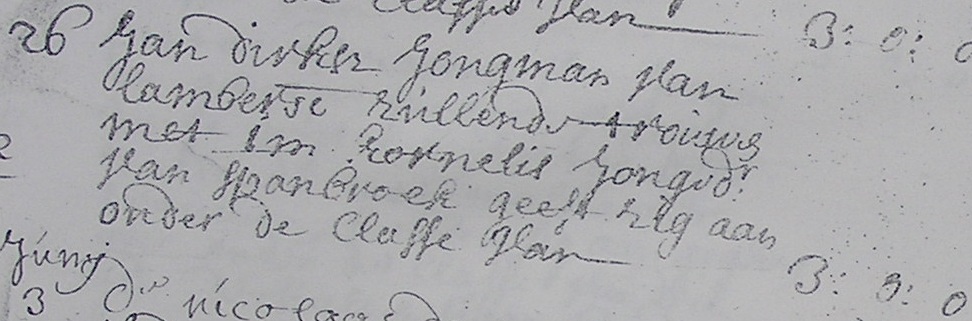 de Classis van 3: 0: 0
26 Jan dirksz Jongman van
lambersc zullende trouwe
met Im kornelis Jongedr
van spanbroek geeft zig aan
onder de Classe van
3: 3: 0
Junij
3 do nicolaas